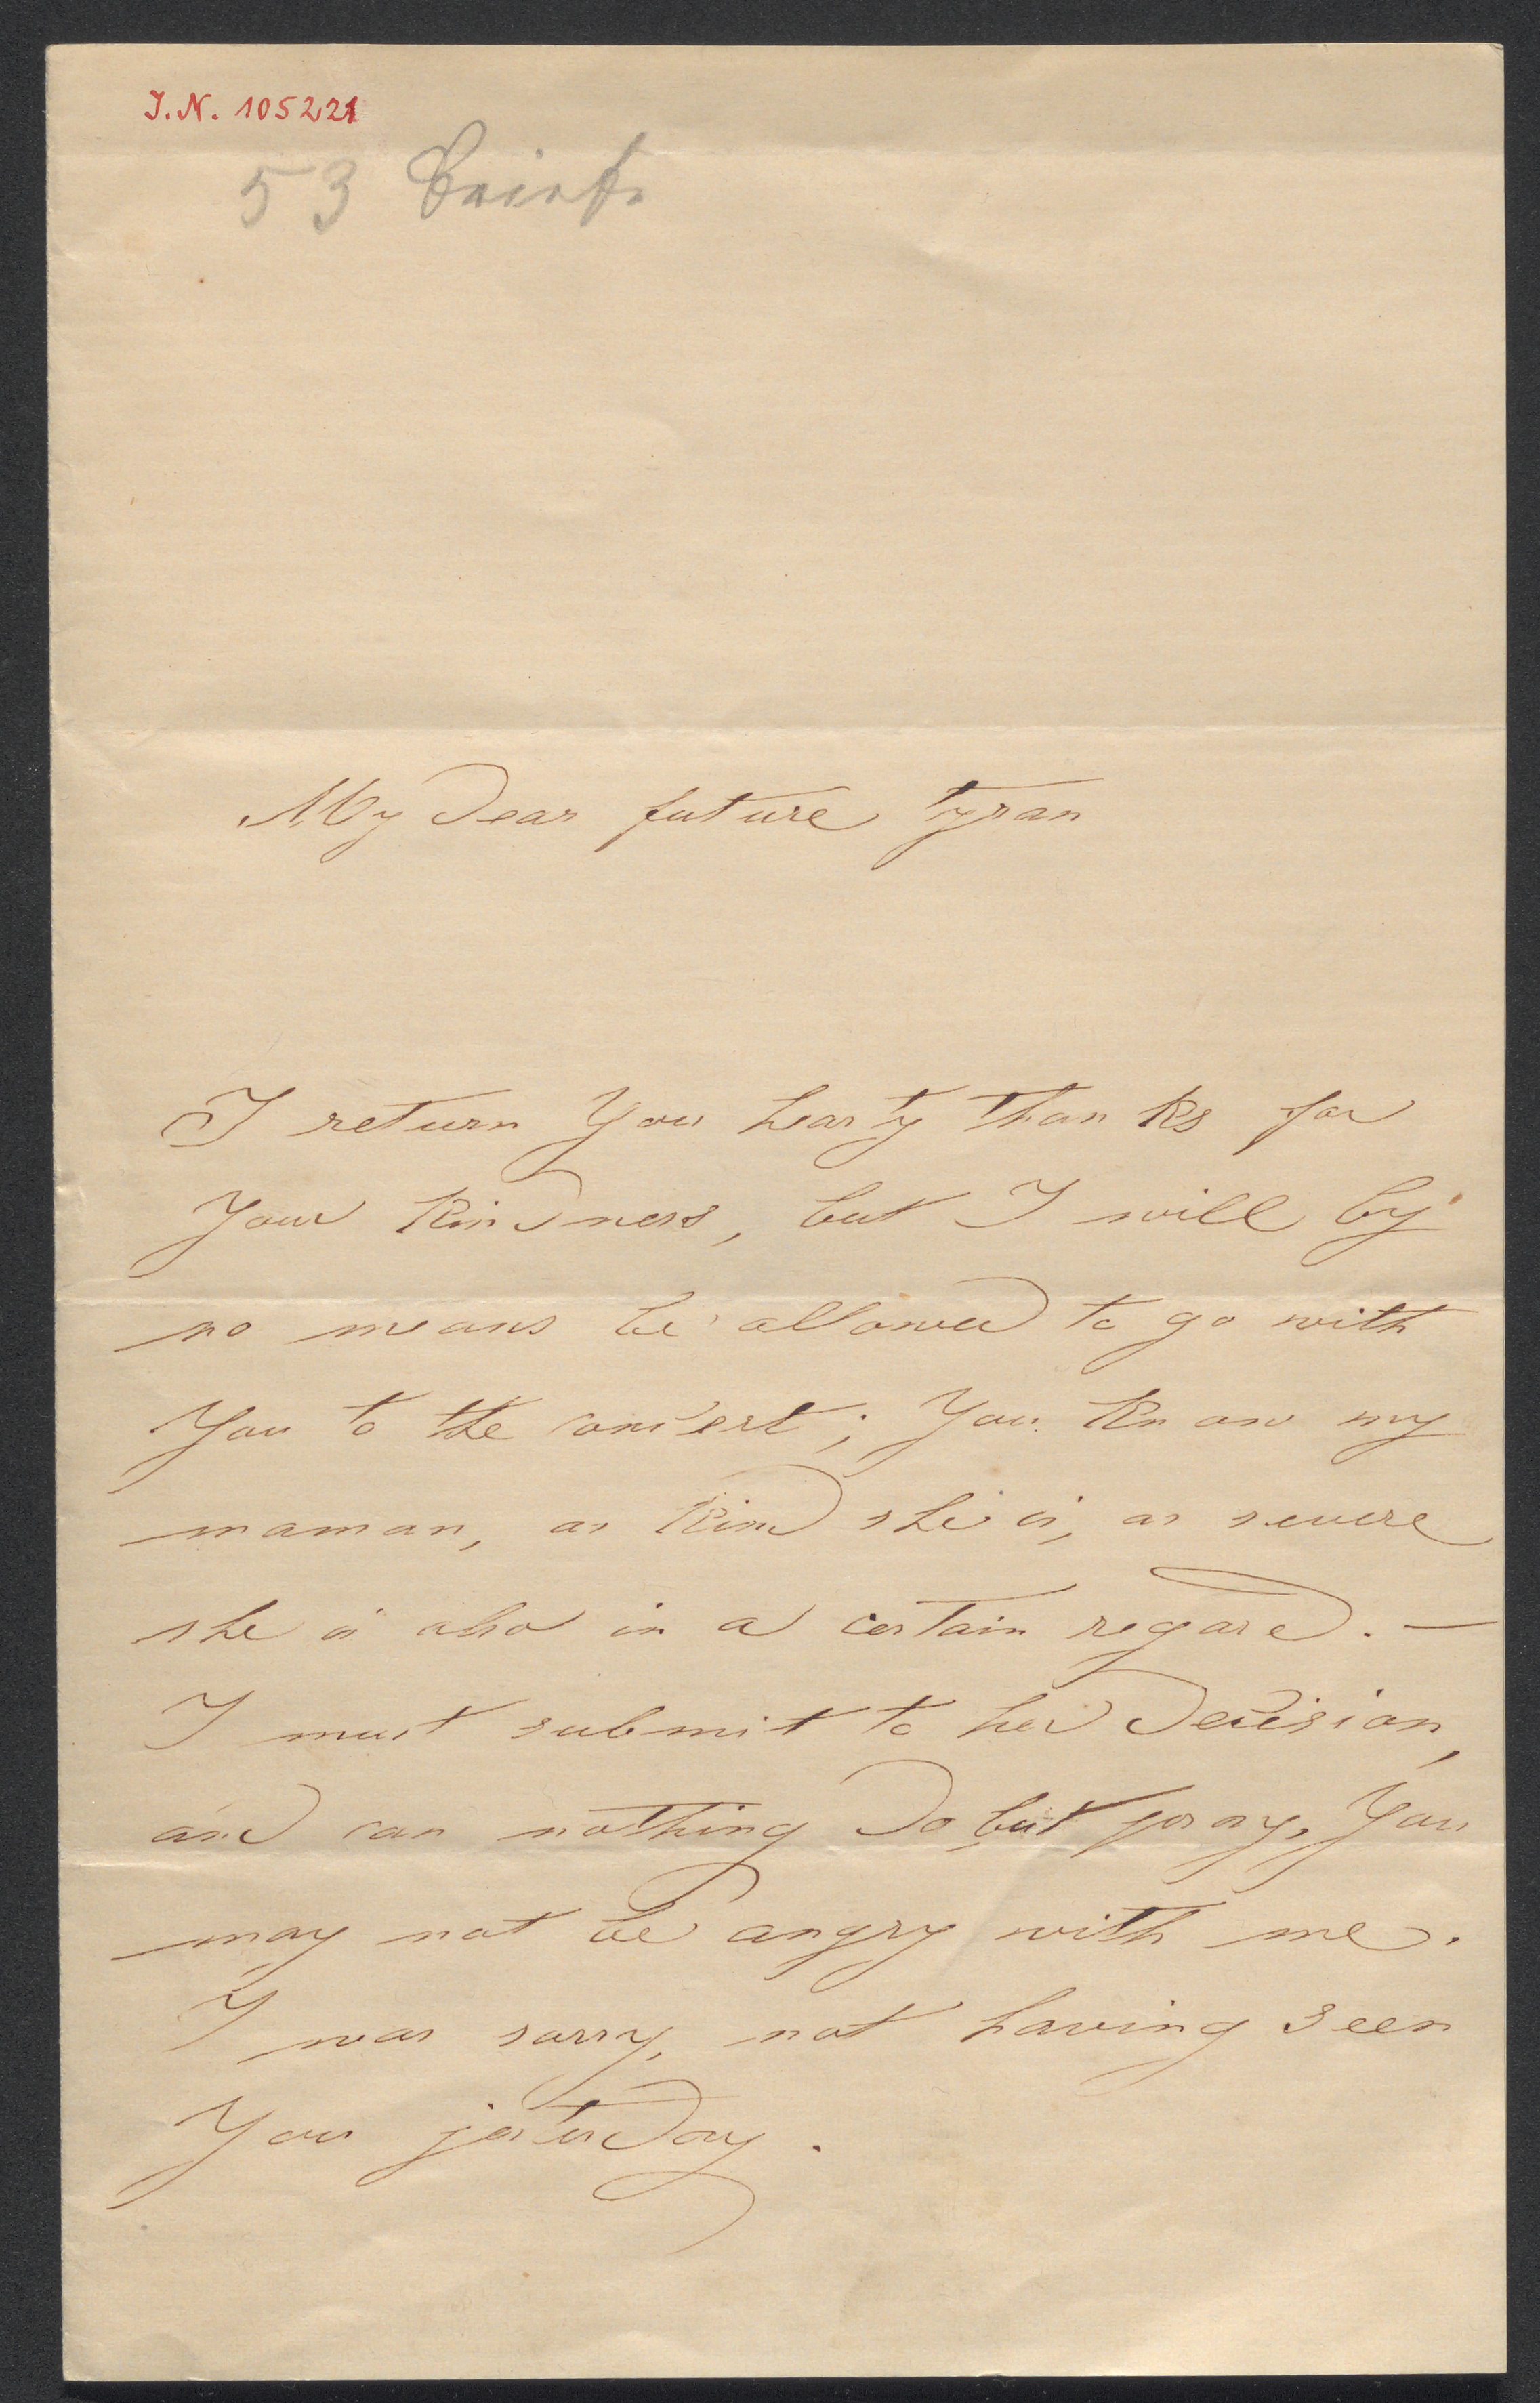 I.N. 105221
53 Briefe
My dear future tyran
I return You hearty thanks for
Your kindness, but I will by
no means be allowed to go with
You to the concert; You know my
maman, as kind she is, as severe
she is also in a certain regard. —
I must submit to her decision,
and can nothing do but pray, You
may not be angry with me.
I was sorry, not having seen
You jesterday.